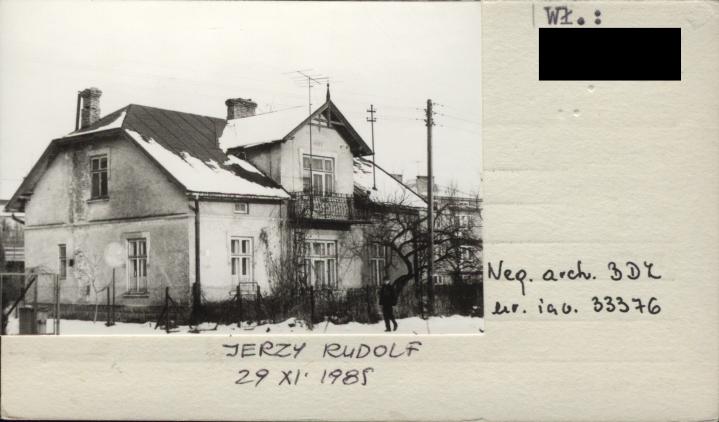 WŁ.:
Neg. arch. BDZ
nr. inv. 33376
JERZY RUDOLF
29 XI. 1985